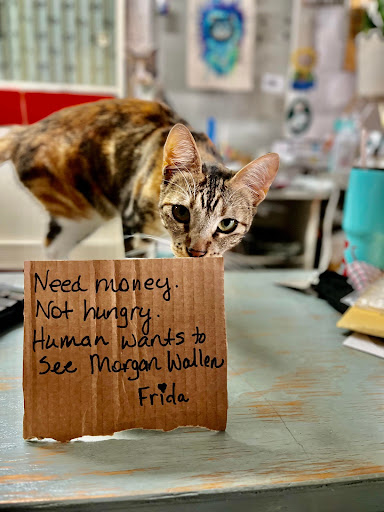 Need money.
Not hungry.
Human wants to
see Morgan Wallen
Frida